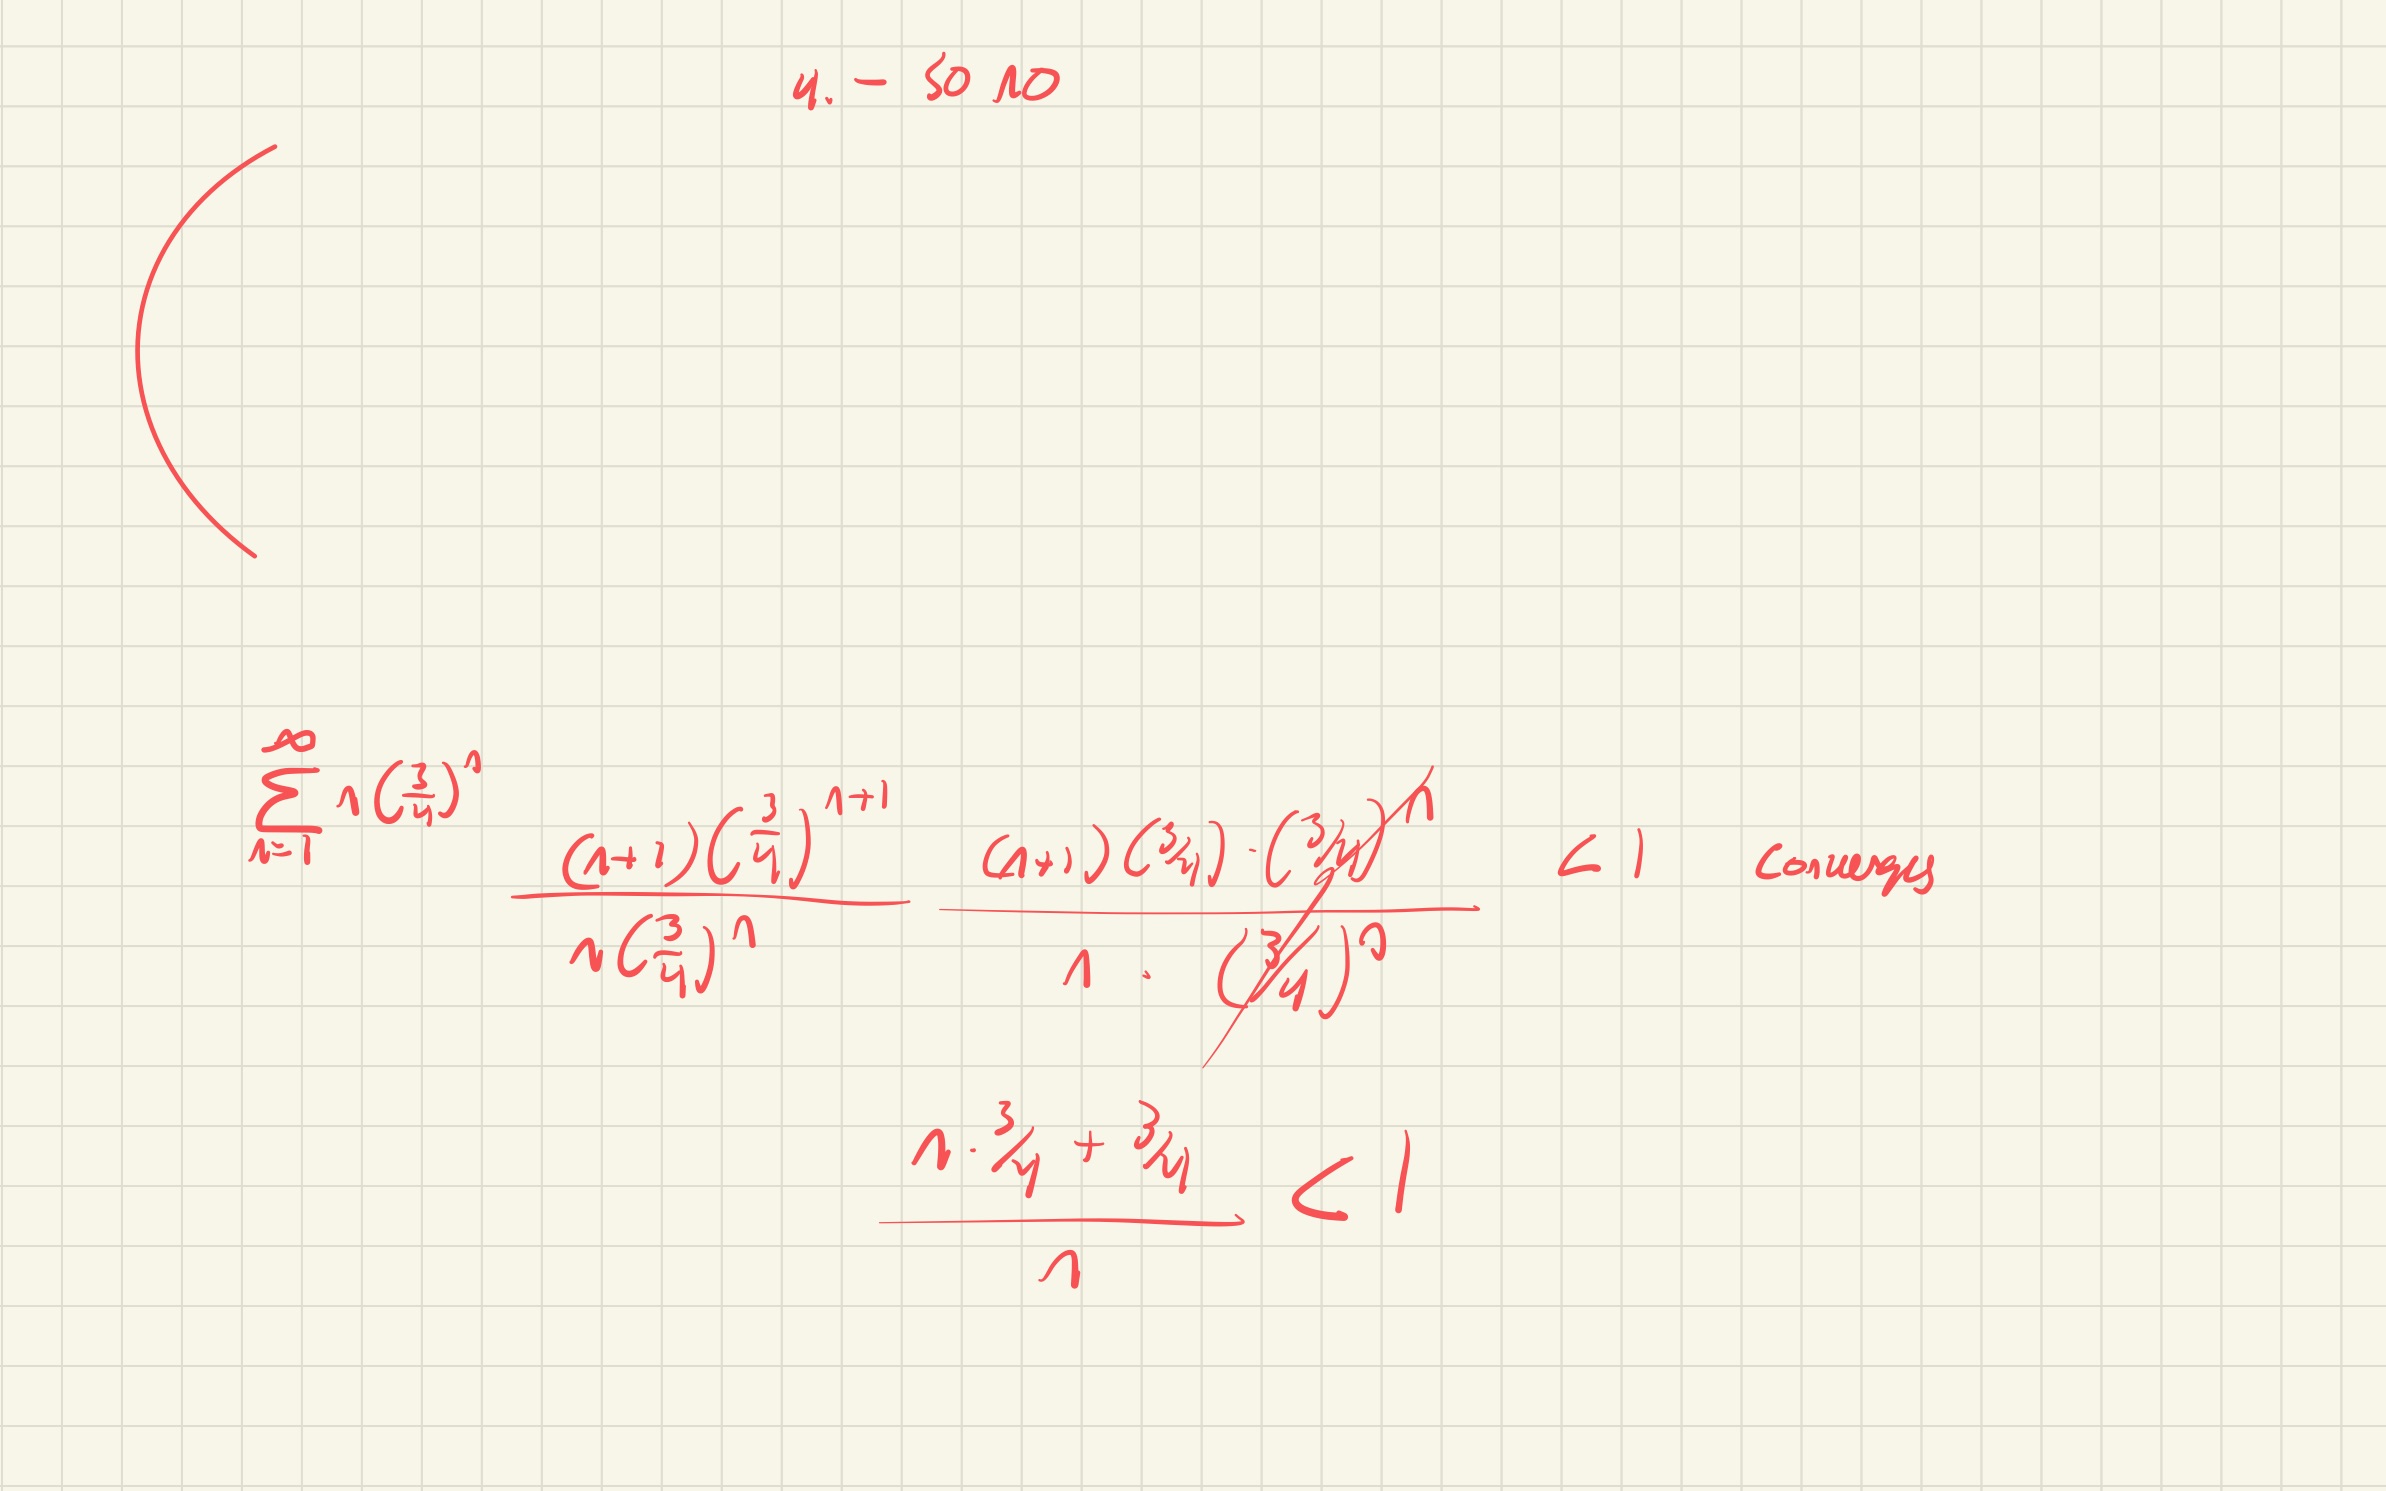 4. - 50 NO
∑_{n=1}^{∞} n(3/4)^n
((n+1)(3/4)^{n+1})/(n(3/4)^n) ((n+1)(3/4)·(3/4)^n)/(n·(3/4)^n) <1 Converges
(n·3/4 + 3/4)/n <1